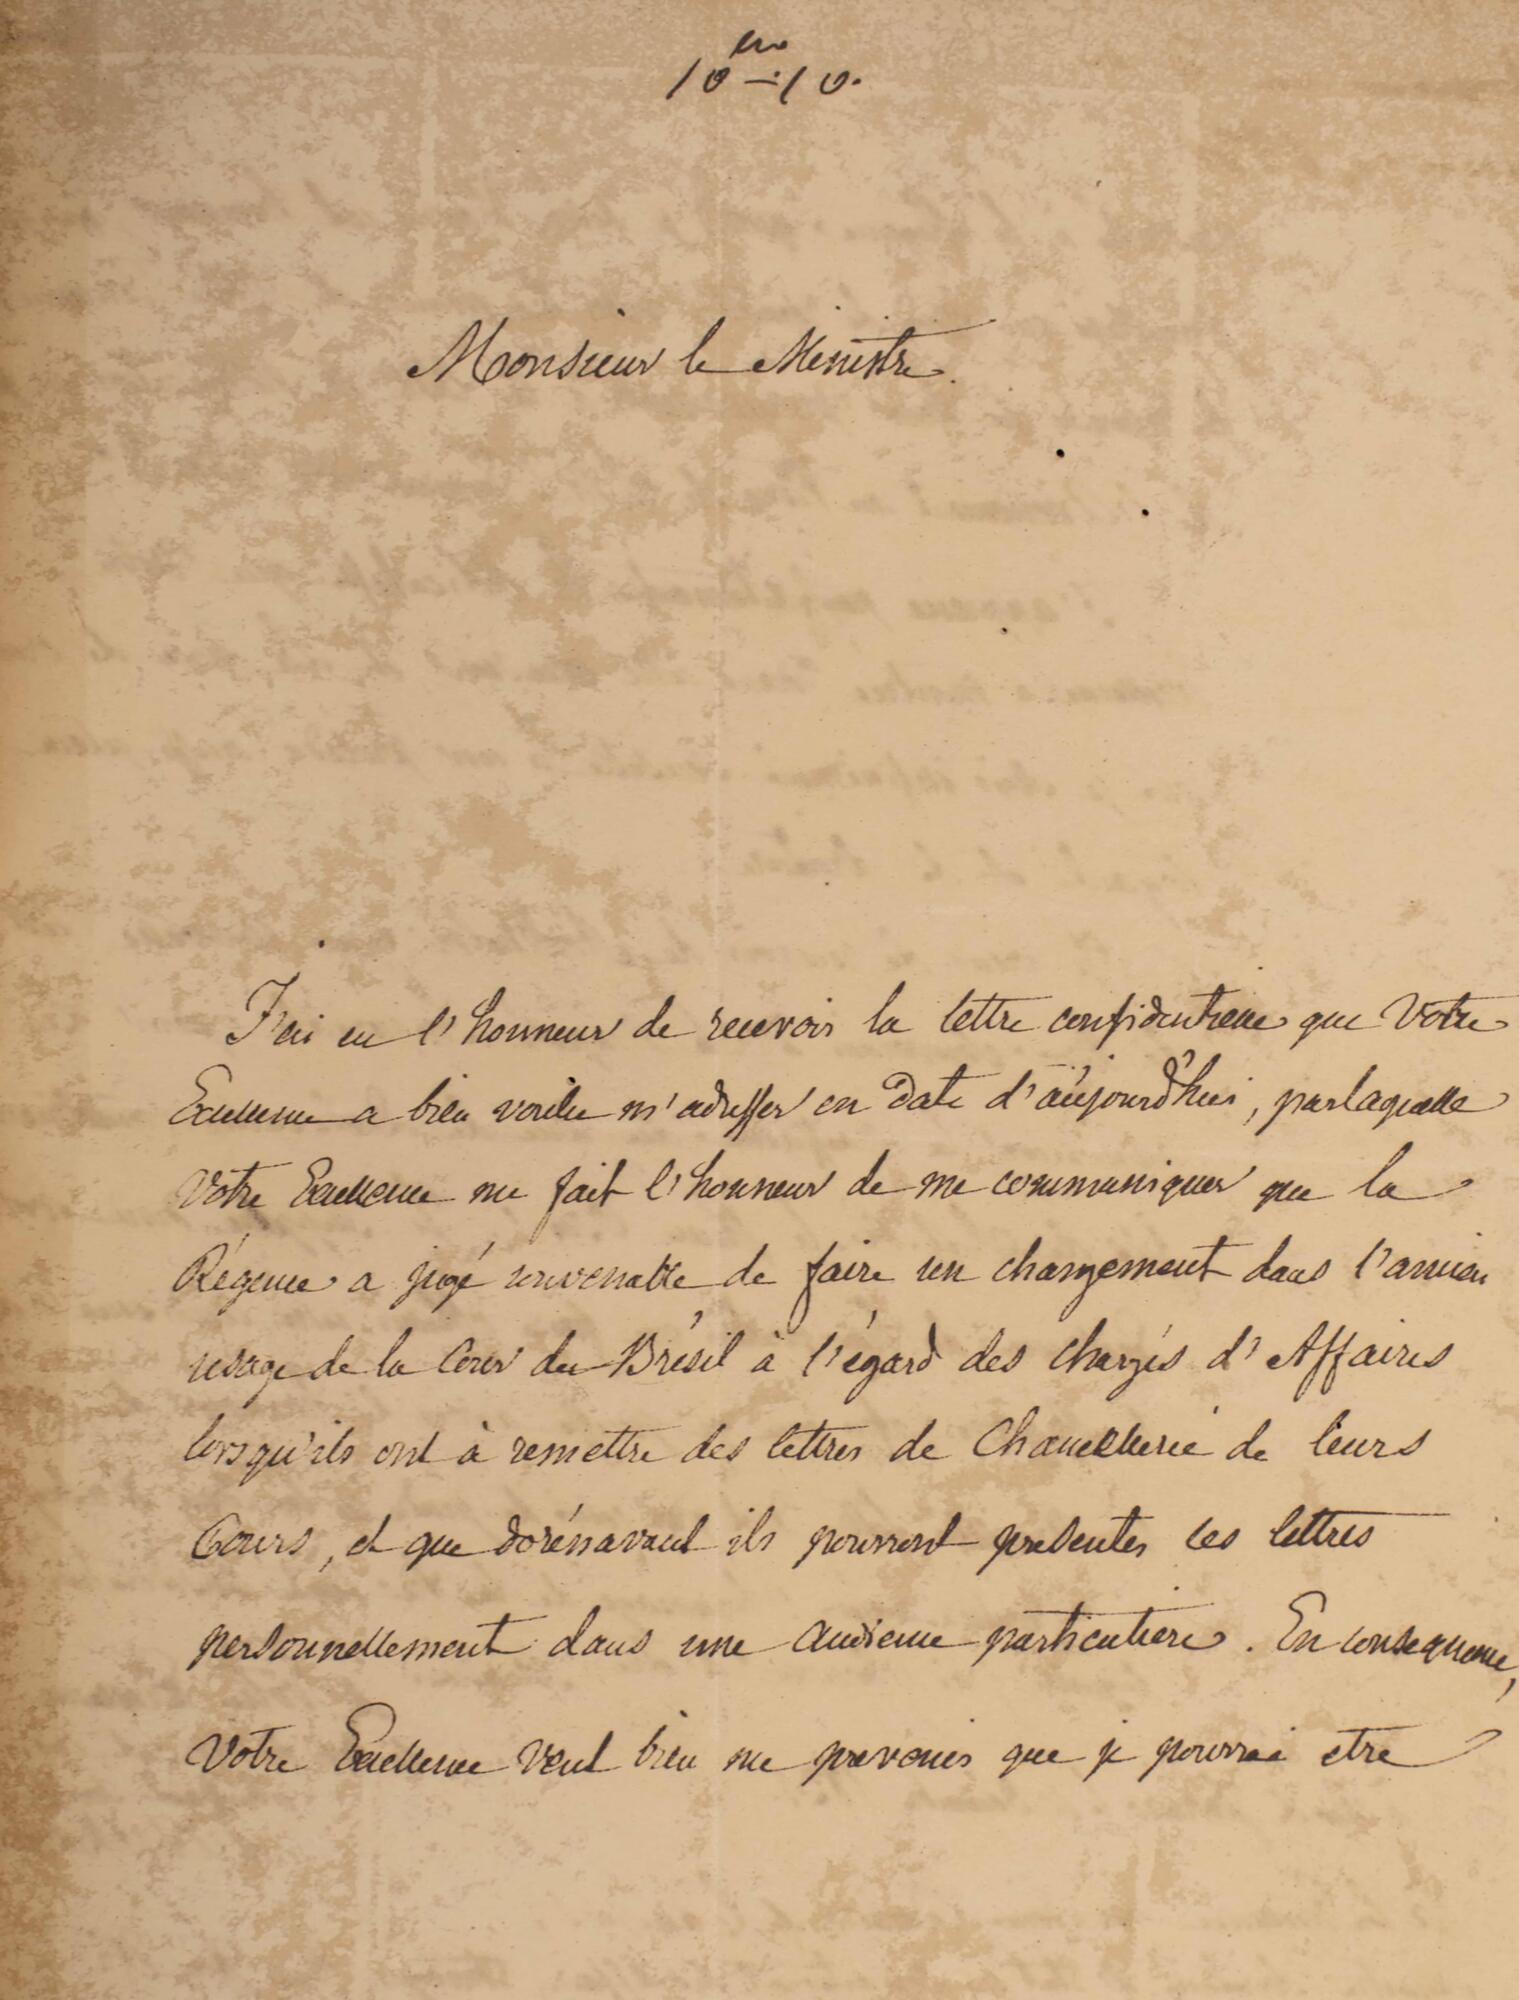 Monsieur le Ministre.
J'ai eu l'honneur de recevoir la lettre confidentielle que Votre
Excellence a bien voulu m'adresser en date d'aujourd'hui, par laquelle
Votre Excellence me fait l'honneur de me communiquer que la
Régence a jugé convenable de faire un changement dans l'ancien
usage de la Cour du Brésil à l'égard des chargés d'Affaires
lorsqu'ils ont à remettre des lettres de Chancellerie de leurs
Cours, et que dorénavant ils pourront presenter ces lettres
personnellement dans une audience particulière. En consequence,
Votre Excellence veut bien me prevenir que je pourrai etre